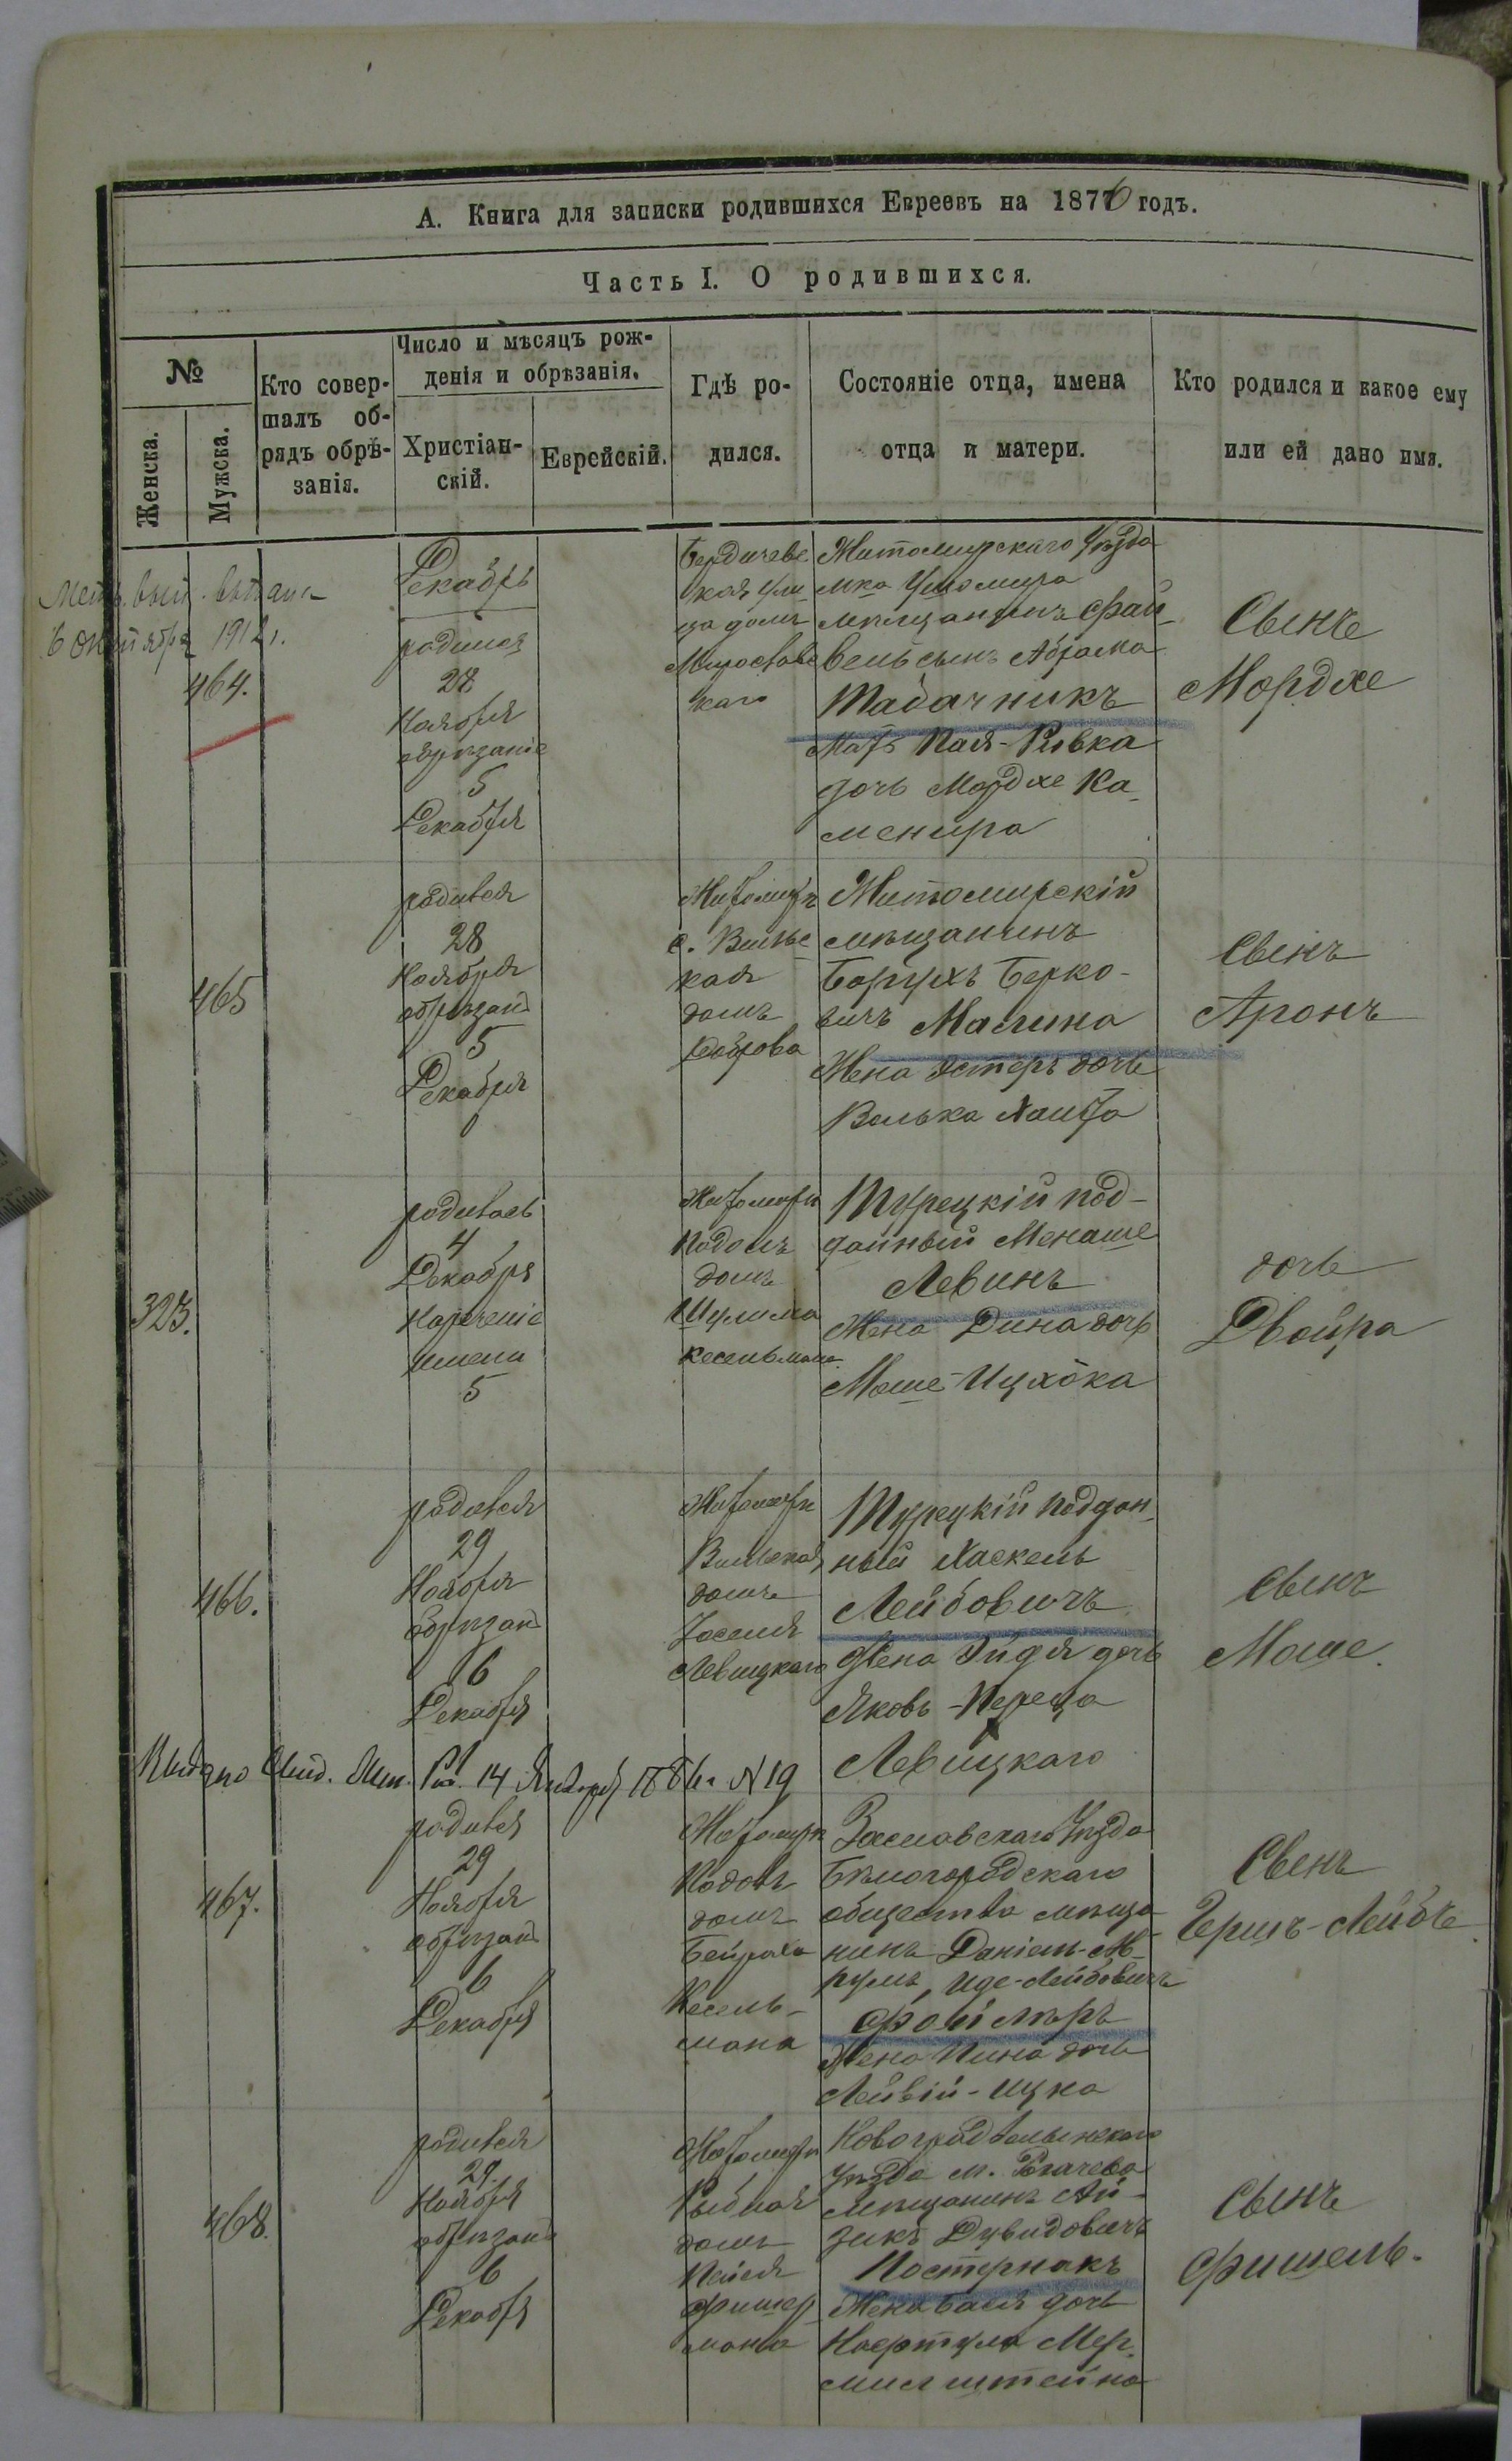 А. Книга для записки родившихся Евреевъ на 1876 годъ.
Часть I. О родившихся.
№
Женска.
Мужска.
Кто совер-
шалъ об-
рядъ обрѣ-
занія.
Число и мѣсяцъ рож-
денія и обрѣзанія.
Христіан-
скій.
Еврейскій.
Гдѣ ро-
дился.
Состояніе отца, имена
отца и матери.
Кто родился и какое ему
или ей дано имя.
6 октября 1912 г.
464.
Декабрь
родился
28
Ноября
обрѣзаніе
5
Декабря
Бердичевс
кая ули
ца домъ
каго
Житомирскаго Уѣзда
мка Ушомира
мѣщанинъ Фай-
вель сынъ Абрама
Табачникъ
Мать Пая-Ривка
дочь Мордхе Ка-
менира
Сынъ
Мордхе
465
родился
28
Ноября
обрѣзані
5
Декабря
Житомиръ
Вильс
кая
домъ
Житомирскій
мѣщанинъ
Борухъ Берко-
вичъ Малина
Жена Эстеръ дочь
Волька
Сынъ
Аронъ
323.
родилась
4
Декабря
Нареченіе
имени
5
Житомиръ
Подолъ
домъ
Шулима
Кесельмана
Турецкій под-
данный Менаше
Левинъ
Жена Дина дочь
Моше-Ицхока
дочь
Двойра
466.
родился
29
Ноября
обрѣзані
6
Декабря
Житомиръ
Вильская
домъ
Іоселя
Левицкаго
Турецкій поддан-
ный Хаскель
Лейбовичъ
Жена Эйдя дочь
Яковъ-Переца
Левицкаго
Сынъ
Моше.
Выдано Свид. 14 Января 1886 г N 19
467.
родился
29
Ноября
обрѣзані
6
Декабря
Житомиръ
Подолъ
домъ
Кесель-
мана
Заславскаго Уѣзда
Бѣлогородскаго
общества мѣща-
нинъ Даніель-Ме-
Иде-Лейбовичъ
Фойлеръ
Жена дочь
Ицка
Сынъ
Гершъ-Лейбъ
468.
родился
29.
Ноября
обрѣзаніе
6
Декабря
Житомиръ
Рыбная
домъ
Пейся
Фишер
мана
Новоградволынскаго
уѣзда м. Рогачева
мѣщанинъ Ай-
зикъ Дувидовичъ
Постернакъ
Жена Бася дочь
Сынъ
Фишель.